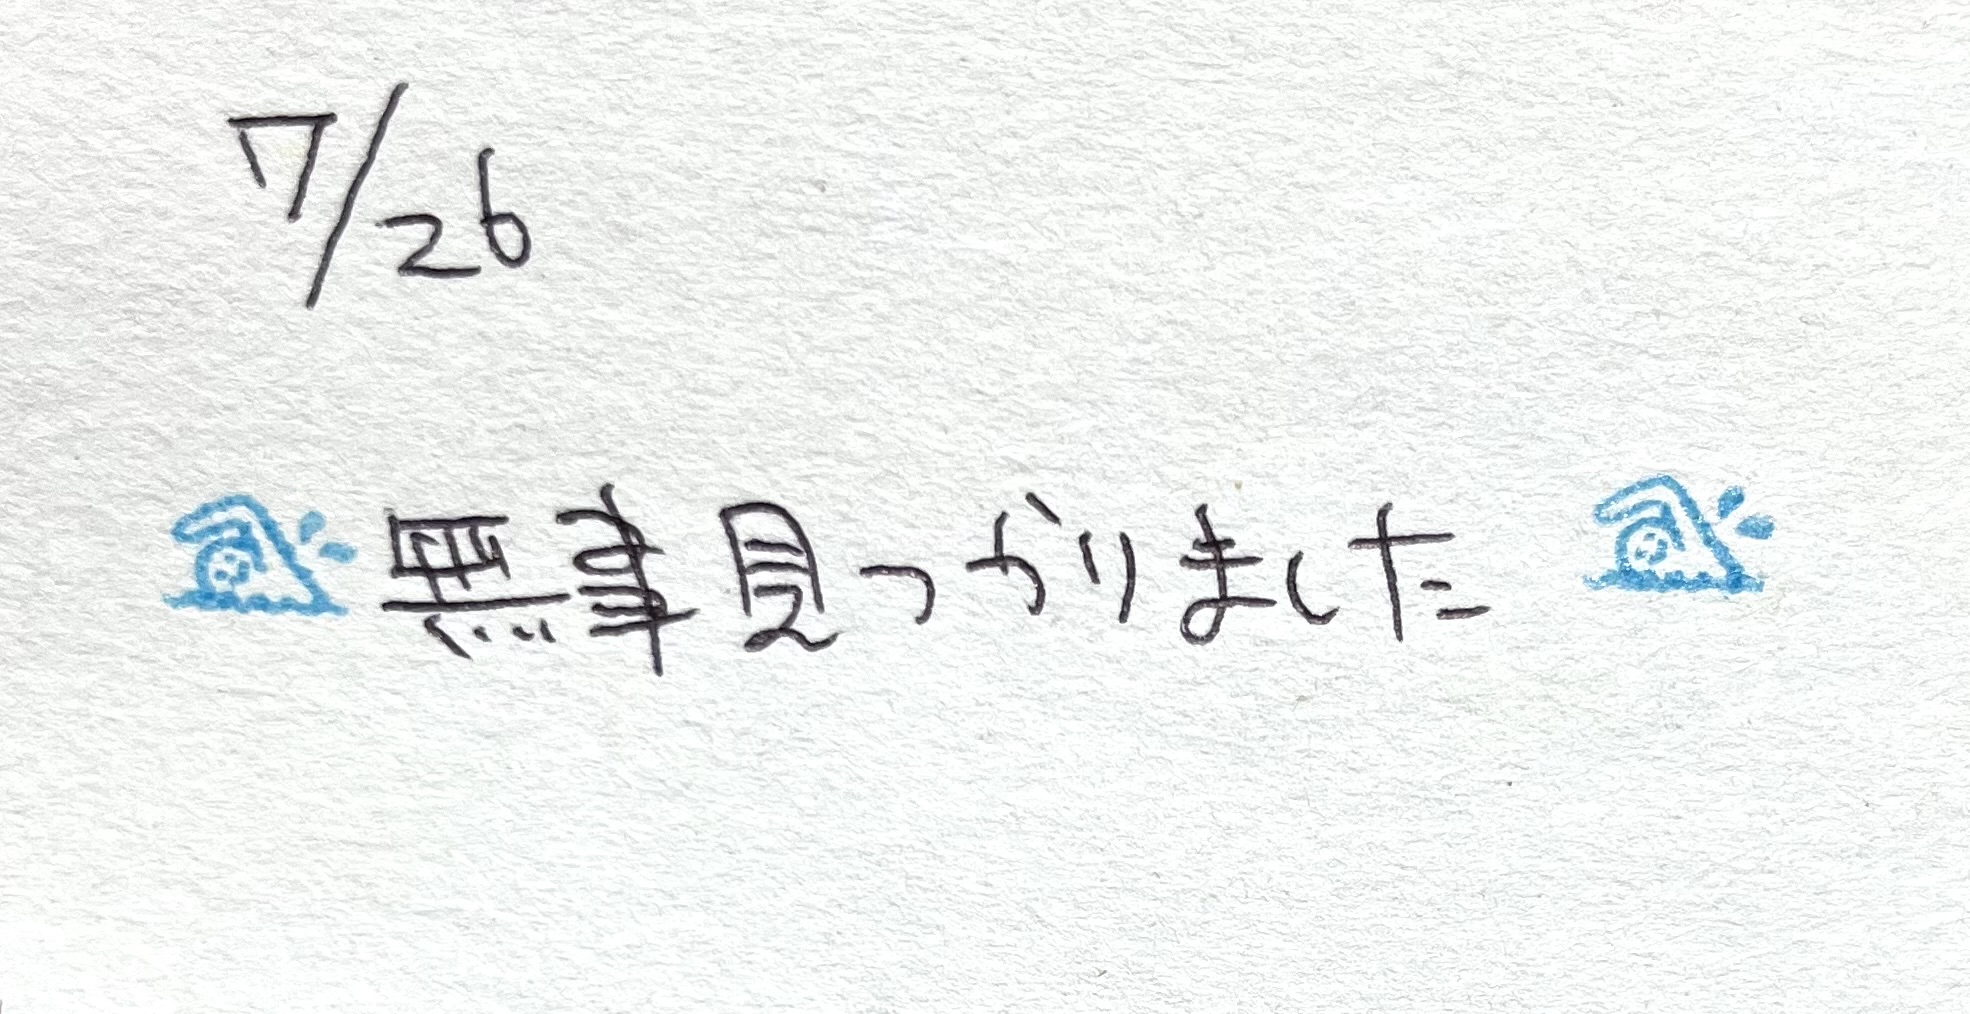 7/26
無事見つかりました